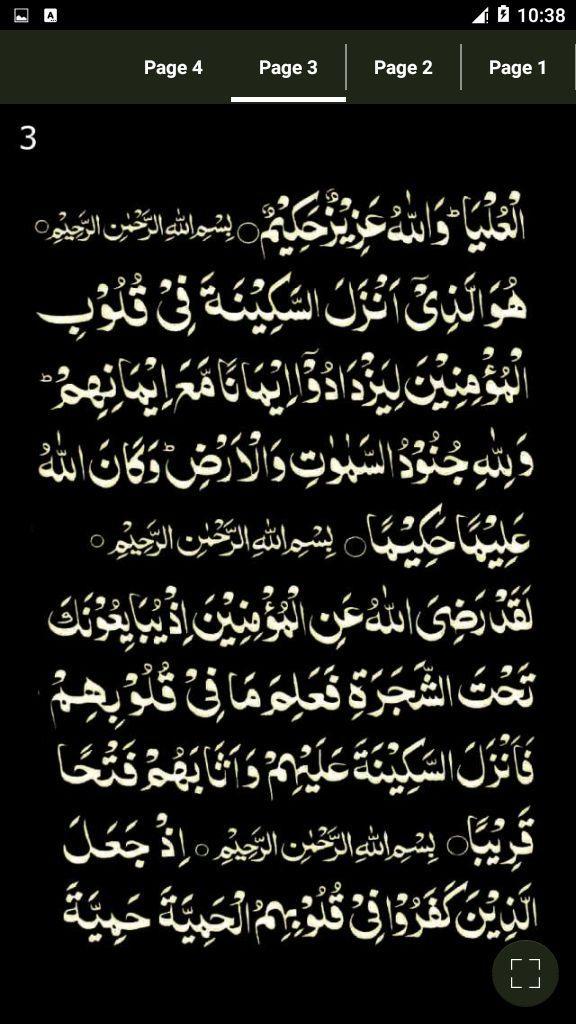 10:38
Page 4 Page 3 Page 2 Page 1
3
الْعُلْيَا ؕ وَاللّٰهُ عَزِيْزٌ حَكِيْمٌ ○ بِسْمِ اللّٰهِ الرَّحْمٰنِ الرَّحِيْمِ ○
هُوَ الَّذِىْۤ اَنْزَلَ السَّكِيْنَةَ فِىْ قُلُوْبِ
الْمُؤْمِنِيْنَ لِيَزْدَادُوْۤا اِيْمَانًا مَّعَ اِيْمَانِهِمْ ؕ
وَلِلّٰهِ جُنُوْدُ السَّمٰوٰتِ وَالْاَرْضِ ؕ وَكَانَ اللّٰهُ
عَلِيْمًا حَكِيْمًا ○ بِسْمِ اللّٰهِ الرَّحْمٰنِ الرَّحِيْمِ ○
لَقَدْ رَضِىَ اللّٰهُ عَنِ الْمُؤْمِنِيْنَ اِذْ يُبَايِعُوْنَكَ
تَحْتَ الشَّجَرَةِ فَعَلِمَ مَا فِىْ قُلُوْبِهِمْ
فَاَنْزَلَ السَّكِيْنَةَ عَلَيْهِمْ وَاَثَابَهُمْ فَتْحًا
قَرِيْبًا ○ بِسْمِ اللّٰهِ الرَّحْمٰنِ الرَّحِيْمِ ○ اِذْ جَعَلَ
الَّذِيْنَ كَفَرُوْا فِىْ قُلُوْبِهِمُ الْحَمِيَّةَ حَمِيَّةَ